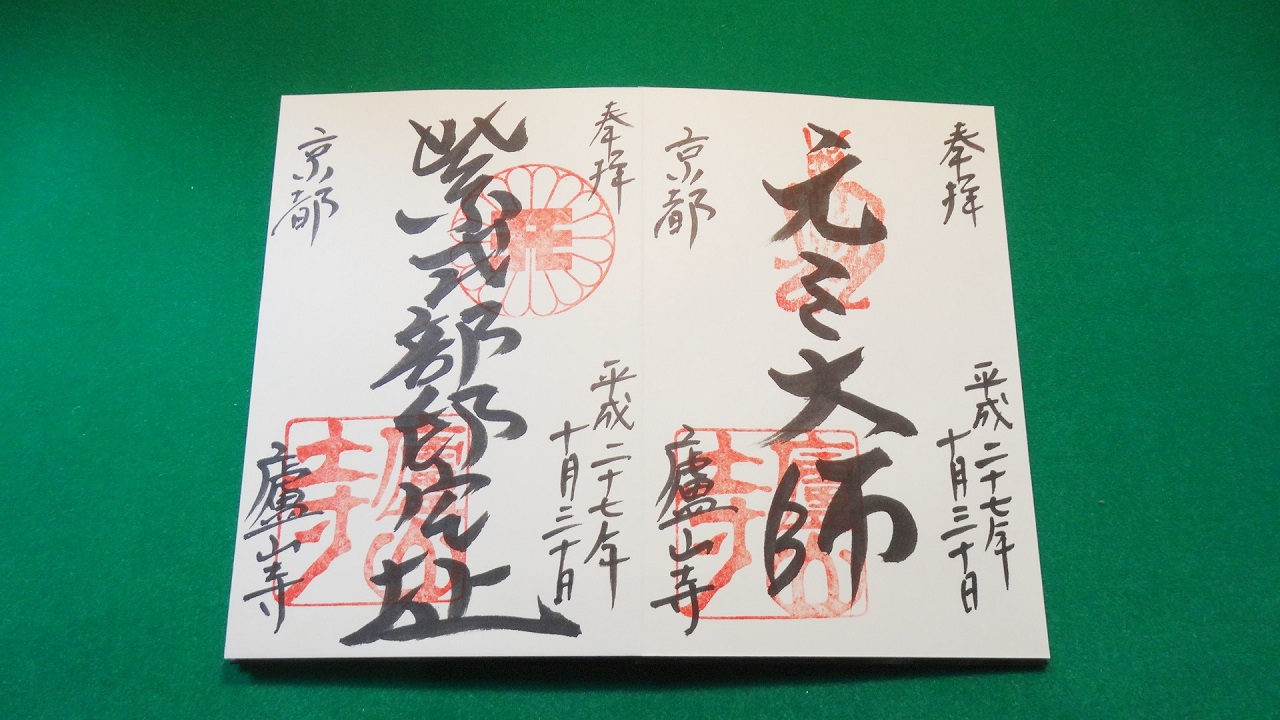 奉拝
平成二十七年
十月三十日
元三大師
京都
廬山寺
奉拝
平成二十七年
十月三十日
紫式部邸宅址
京都
廬山寺